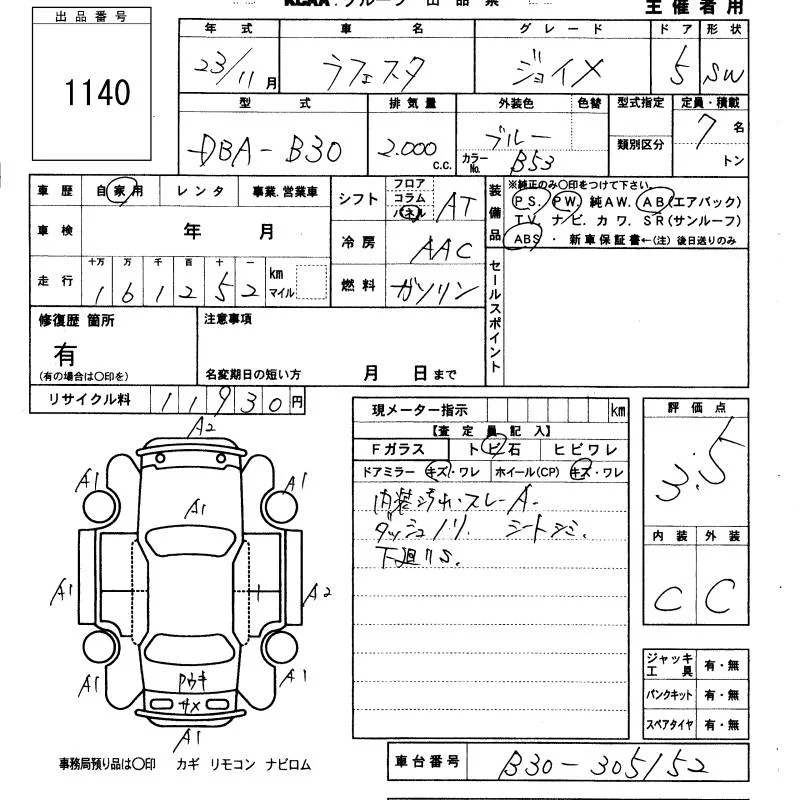 KCAA グループ 出品票
主催者用
出品番号
1140
年式 車名 グレード ドア 形状
23/11月 ラフェスタ ジョイメ 5 SW
型式 排気量 外装色 色替 型式指定 定員・積載
DBA-B30 2.000 c.c. ブルー カラーNo. B53 類別区分 7名 トン
車歴 自家用 レンタ 事業.営業車
車検 年 月
走行 十万 万 千 百 十 一
1 6 1 2 5 2 km マイル
シフト フロア コラム パネル AT
冷房 AAC
燃料 ガソリン
装備品 ※純正のみ〇印をつけて下さい。
PS. PW. 純AW. AB(エアバック)
TV. ナビ. カワ. SR(サンルーフ)
ABS ・ 新車保証書←(注) 後日送りのみ
セールスポイント
修復歴 箇所
有
(有の場合は〇印を)
注意事項
名変期日の短い方 月 日まで
リサイクル料 11930円
現メーター指示 km
【査定員記入】
Fガラス トビ石 ヒビワレ
ドアミラー キズ・ワレ ホイール(CP) キズ・ワレ
内装汚れ・スレA-
ダッシュノリ. シートシミ.
下廻りS.
評価点
3.5
内装 外装
C C
A2
A1 A1
A1
A1 A2
A1 A1
ウキ
サメ
A1
ジャッキ工具 有・無
パンクキット 有・無
スペアタイヤ 有・無
事務局預り品は〇印 カギ リモコン ナビロム
車台番号 B30-305152